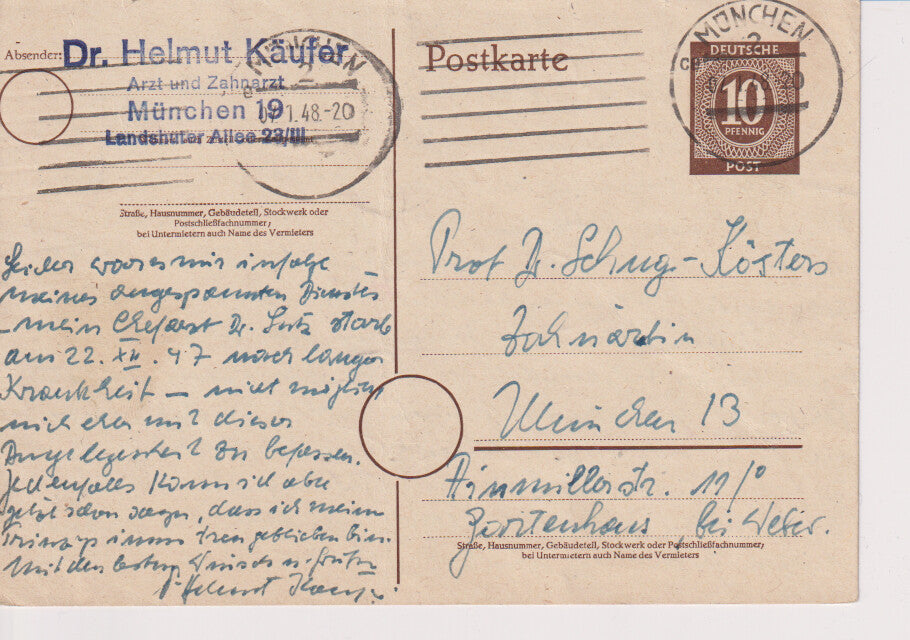 Absender:
Dr. Helmut Käufer
Arzt und Zahnarzt
München 19
Landshuter Allee 23/III
MÜNCHEN
2
1.48.-20
Straße, Hausnummer, Gebäudeteil, Stockwerk oder
Postschließfachnummer;
bei Untermietern auch Name des Vermieters
Leider war es mir infolge
meines angespannten Dienstes
– mein Chefarzt Dr. starb
am 22. XII. 47 nach langer
Krankheit – nicht möglich
mich eher mit dieser
Angelegenheit zu befassen.
Jedenfalls kann ich aber
jetzt schon sagen, dass ich meinem
Prinzip immer treu geblieben bin.
Mit den besten Wünschen u. Grüßen
Helmut
Postkarte
MÜNCHEN
2
DEUTSCHE
10
PFENNIG
POST
Prof Dr. Schug-Kösters
Zahnärztin
München 13
Ainmillerstr. 11/0
Gartenhaus, bei Weber.
Straße, Hausnummer, Gebäudeteil, Stockwerk oder Postschließfachnummer;
bei Untermietern auch Name des Vermieters